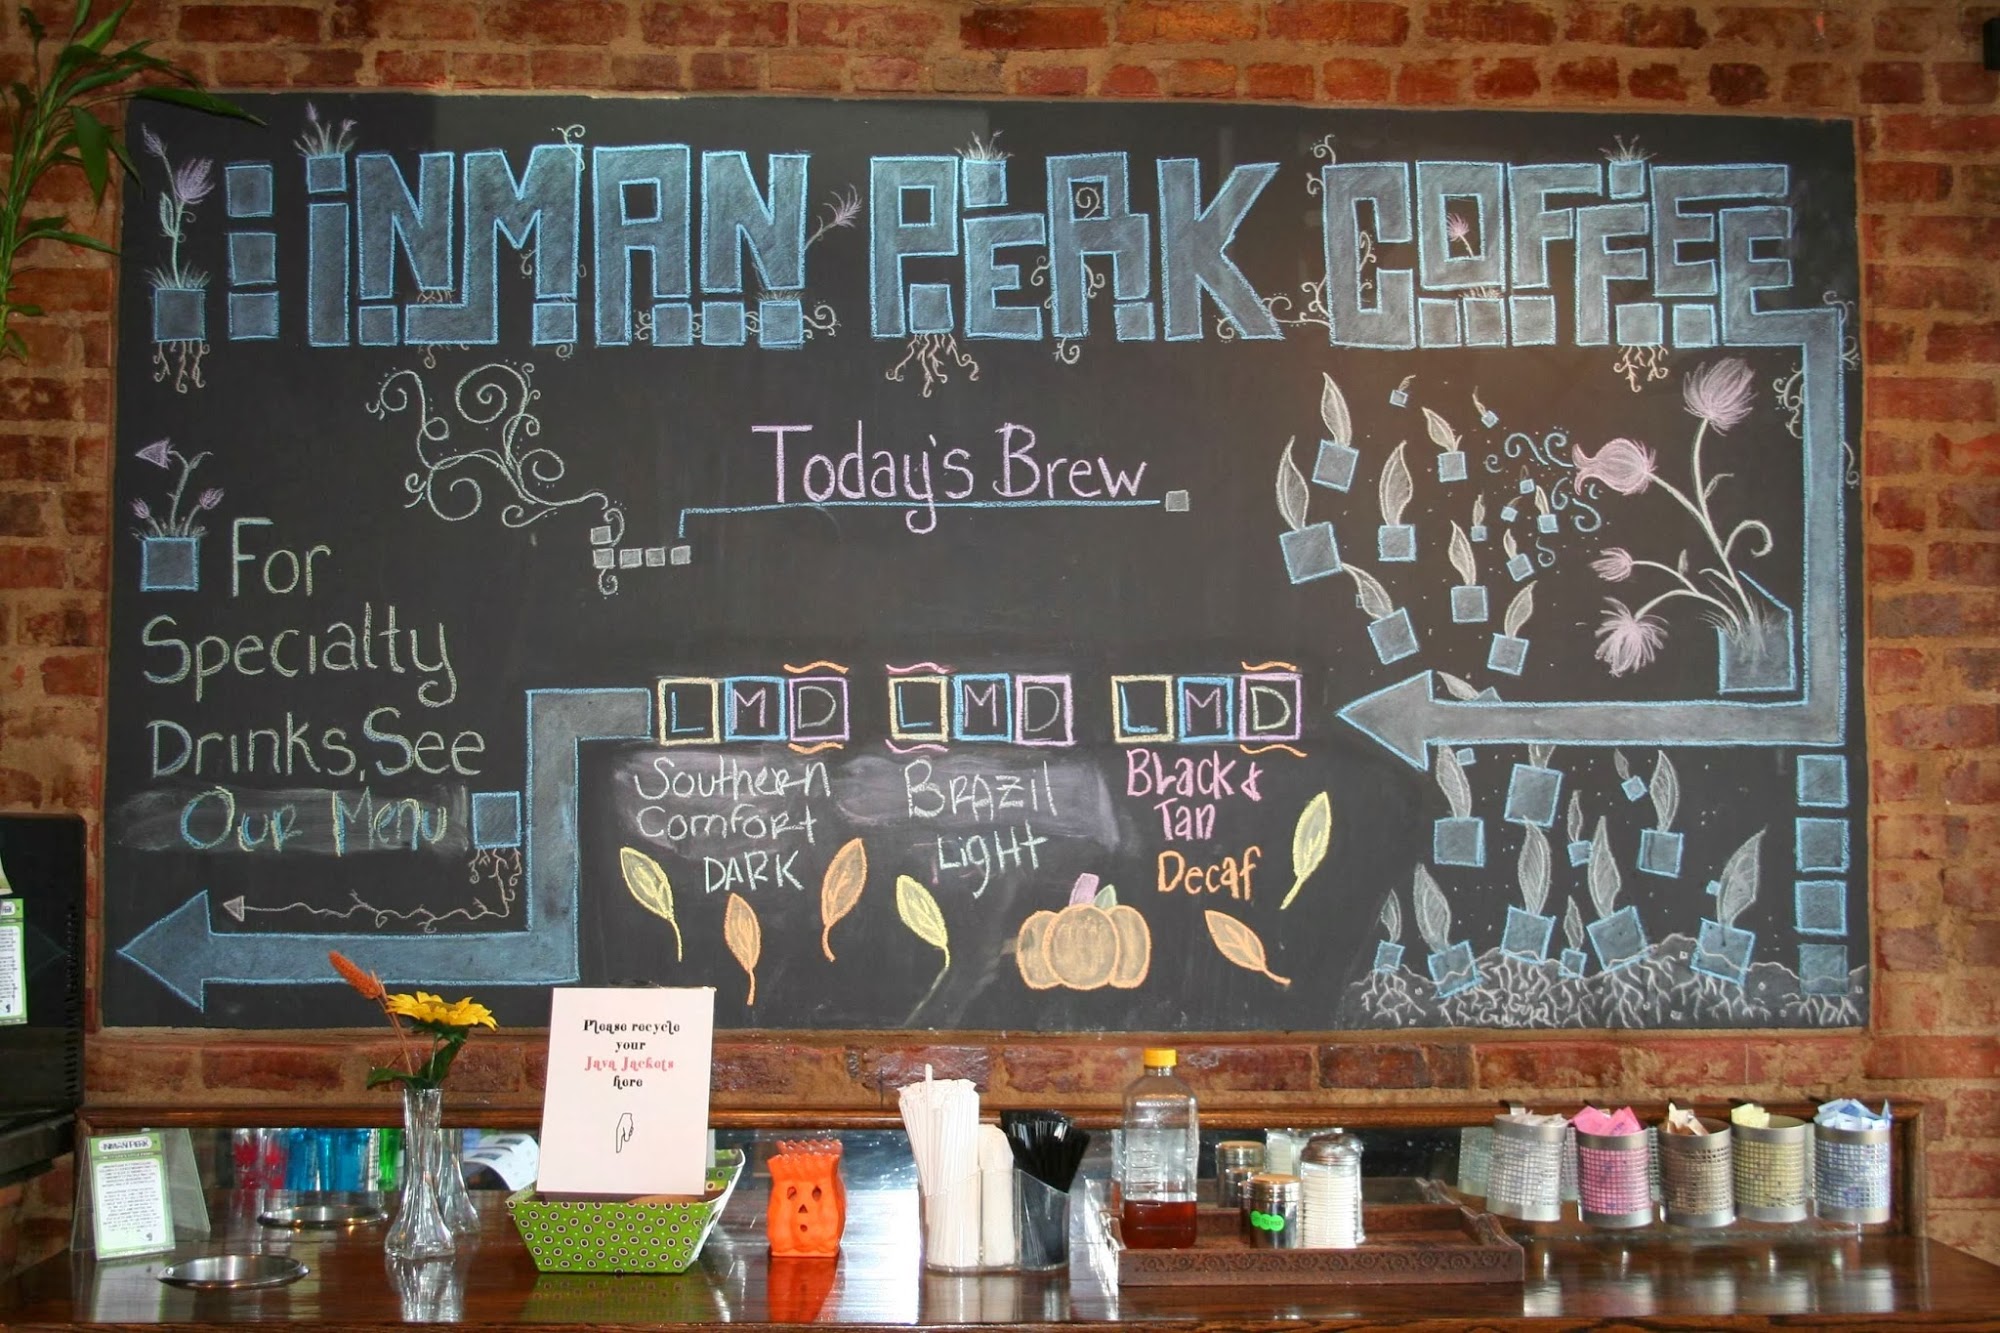 INMAN PERK COFFEE
Today's Brew
For
Specialty
Drinks, See
Our Menu
L M D
Southern
Comfort
DARK
L M D
BRAZil
Light
L M D
BLack &
Tan
Decaf
Please recycle
your
Java Jackets
here
INMAN PERK